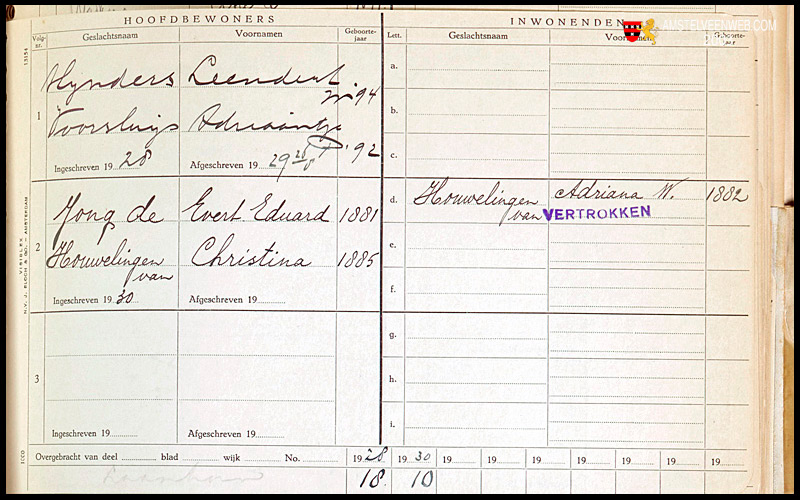 AMSTELVEENWEB.COM
HOOFDBEWONERS INWONENDEN
Volg-nr. Geslachtsnaam Voornamen Geboorte-jaar Lett. Geslachtsnaam Voornamen Geboorte-jaar
13154
a.
Leendert
'94
b.
1
Voorsluijs Adriaantje
'92
c.
Ingeschreven 1928 Afgeschreven 1929
d. Houwelingen Adriana W. 1882
van VERTROKKEN
Jong de Evert Eduard 1881
2
e.
Houwelingen Christina 1885
van
f.
Ingeschreven 1930 Afgeschreven 19
g.
3
h.
i.
Ingeschreven 19 Afgeschreven 19
N.V. J. BLOCH & CO. - AMSTERDAM
VISIBLEX
Overgebracht van deel blad wijk No. 1928 1930 19 19 19 19 19 19 19
18. 10